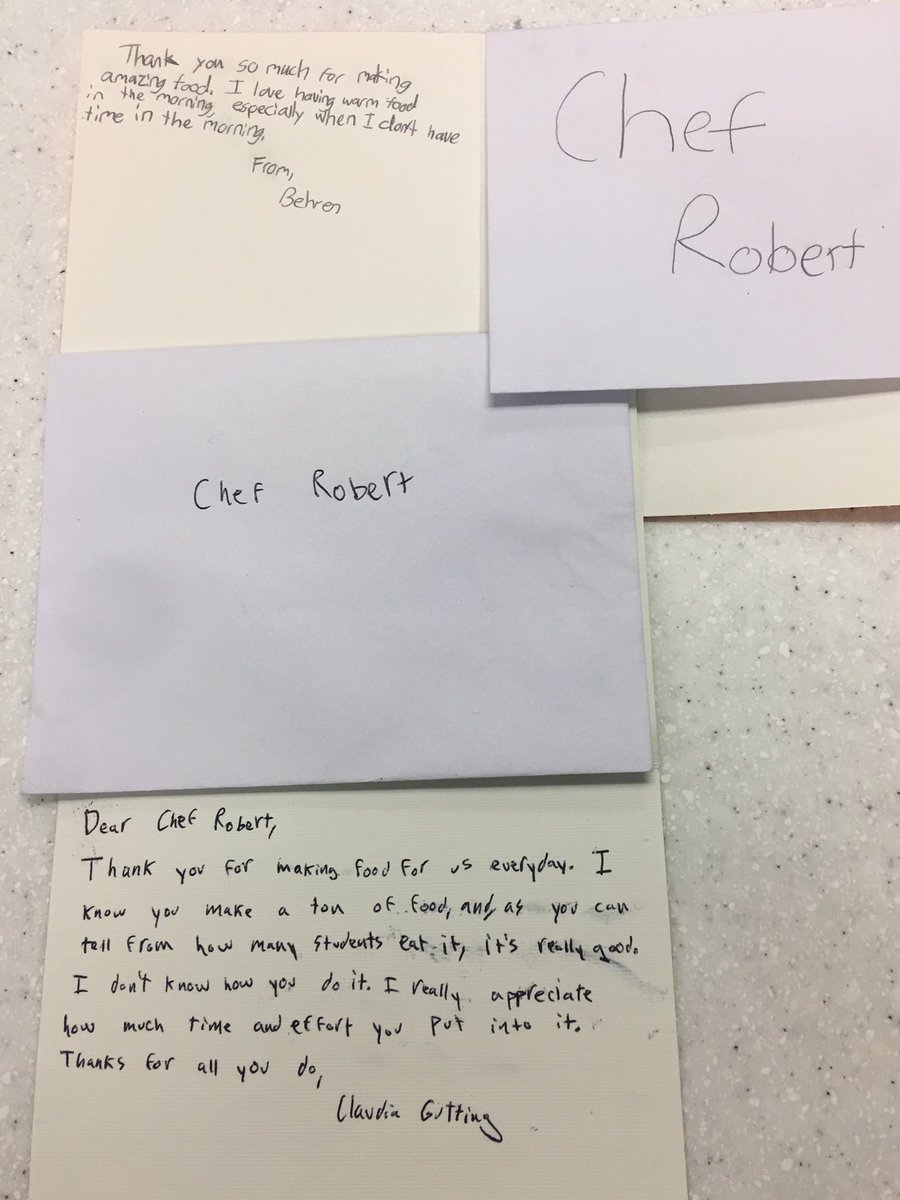 Thank you so much for making
amazing food. I love having warm food
in the morning, especially when I don't have
time in the morning.
From,
Behren
Chef
Robert
Chef Robert
Dear Chef Robert,
Thank you for making food for us everyday. I
know you make a ton of food, and, as you can
tell from how many students eat it, it's really good.
I don't know how you do it. I really appreciate
how much time and effort you put into it.
Thanks for all you do,
Claudia Gutting